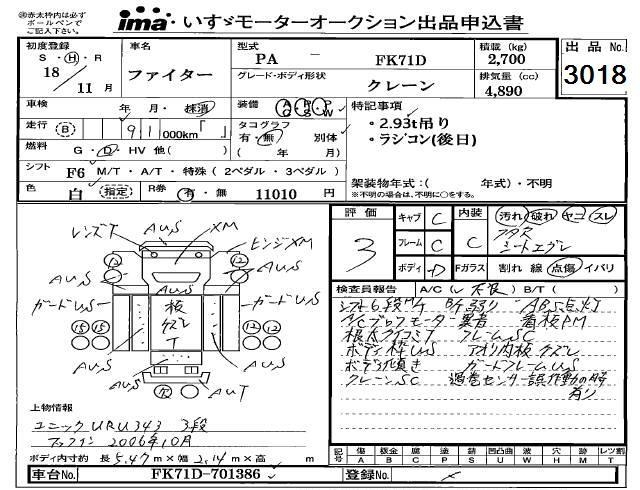 ㊟赤太枠内は必ず
ボールペンで
ご記入下さい。
ima・いすゞモーターオークション出品申込書
初度登録
S・H・R
18/11月
車名
ファイター
型式
PA － FK71D
グレード・ボディ形状
クレーン
積載 (kg)
2,700
排気量 (cc)
4,890
出品 No.
3018
車検 年・月・抹消
走行 (B) 91000km「」
装備 A/C P/S P/W
タコグラフ
有・無 別体
( 年 月)
燃料 G・D・HV 他( )
シフト F6 M/T・A/T・特殊 (2ペダル・3ペダル)
色 白 指定
R券 有・無 11010 円
特記事項
・2.93t吊り
・ラジコン(後日)
架装物年式:( 年式)・不明
※不明の場合は、不明に○をする。
評価
3
キャブ C
フレーム C
ボディ D
内装 C
汚れ 破れ ヤニ スレ
シートエグレ
Fガラス 割れ 線 点傷 イバリ
検査員報告 A/C(レ 不良) B/T( )
シフト6段M/T B/T弱り ABS点灯
A/Cブロアモーター異音 看板PM
クレームSC
ボディ枠US アオリ内板 クズレ
ボディ傾き ガードフレームUS
クレーンSC 過巻センサー誤作動の時
有り
レンズT
AUS
XM
ヒンジXM
12
12
AUS
AUS
ガードUS
ガードUS
板
クズレ
T
15 15
12 12
AUS
AUS
AUS
AUT
上物情報
ユニックURU343 3段
2006年10月
ボディ内寸約 長 5.47 m×幅 2.14 m×高 m
記号 傷 A 板金 B 腐 C 塗 P 錆 S 凹凸曲 U 波 W 穴 H 跡 M レツ割 T
車台No. FK71D-701386
登録No.